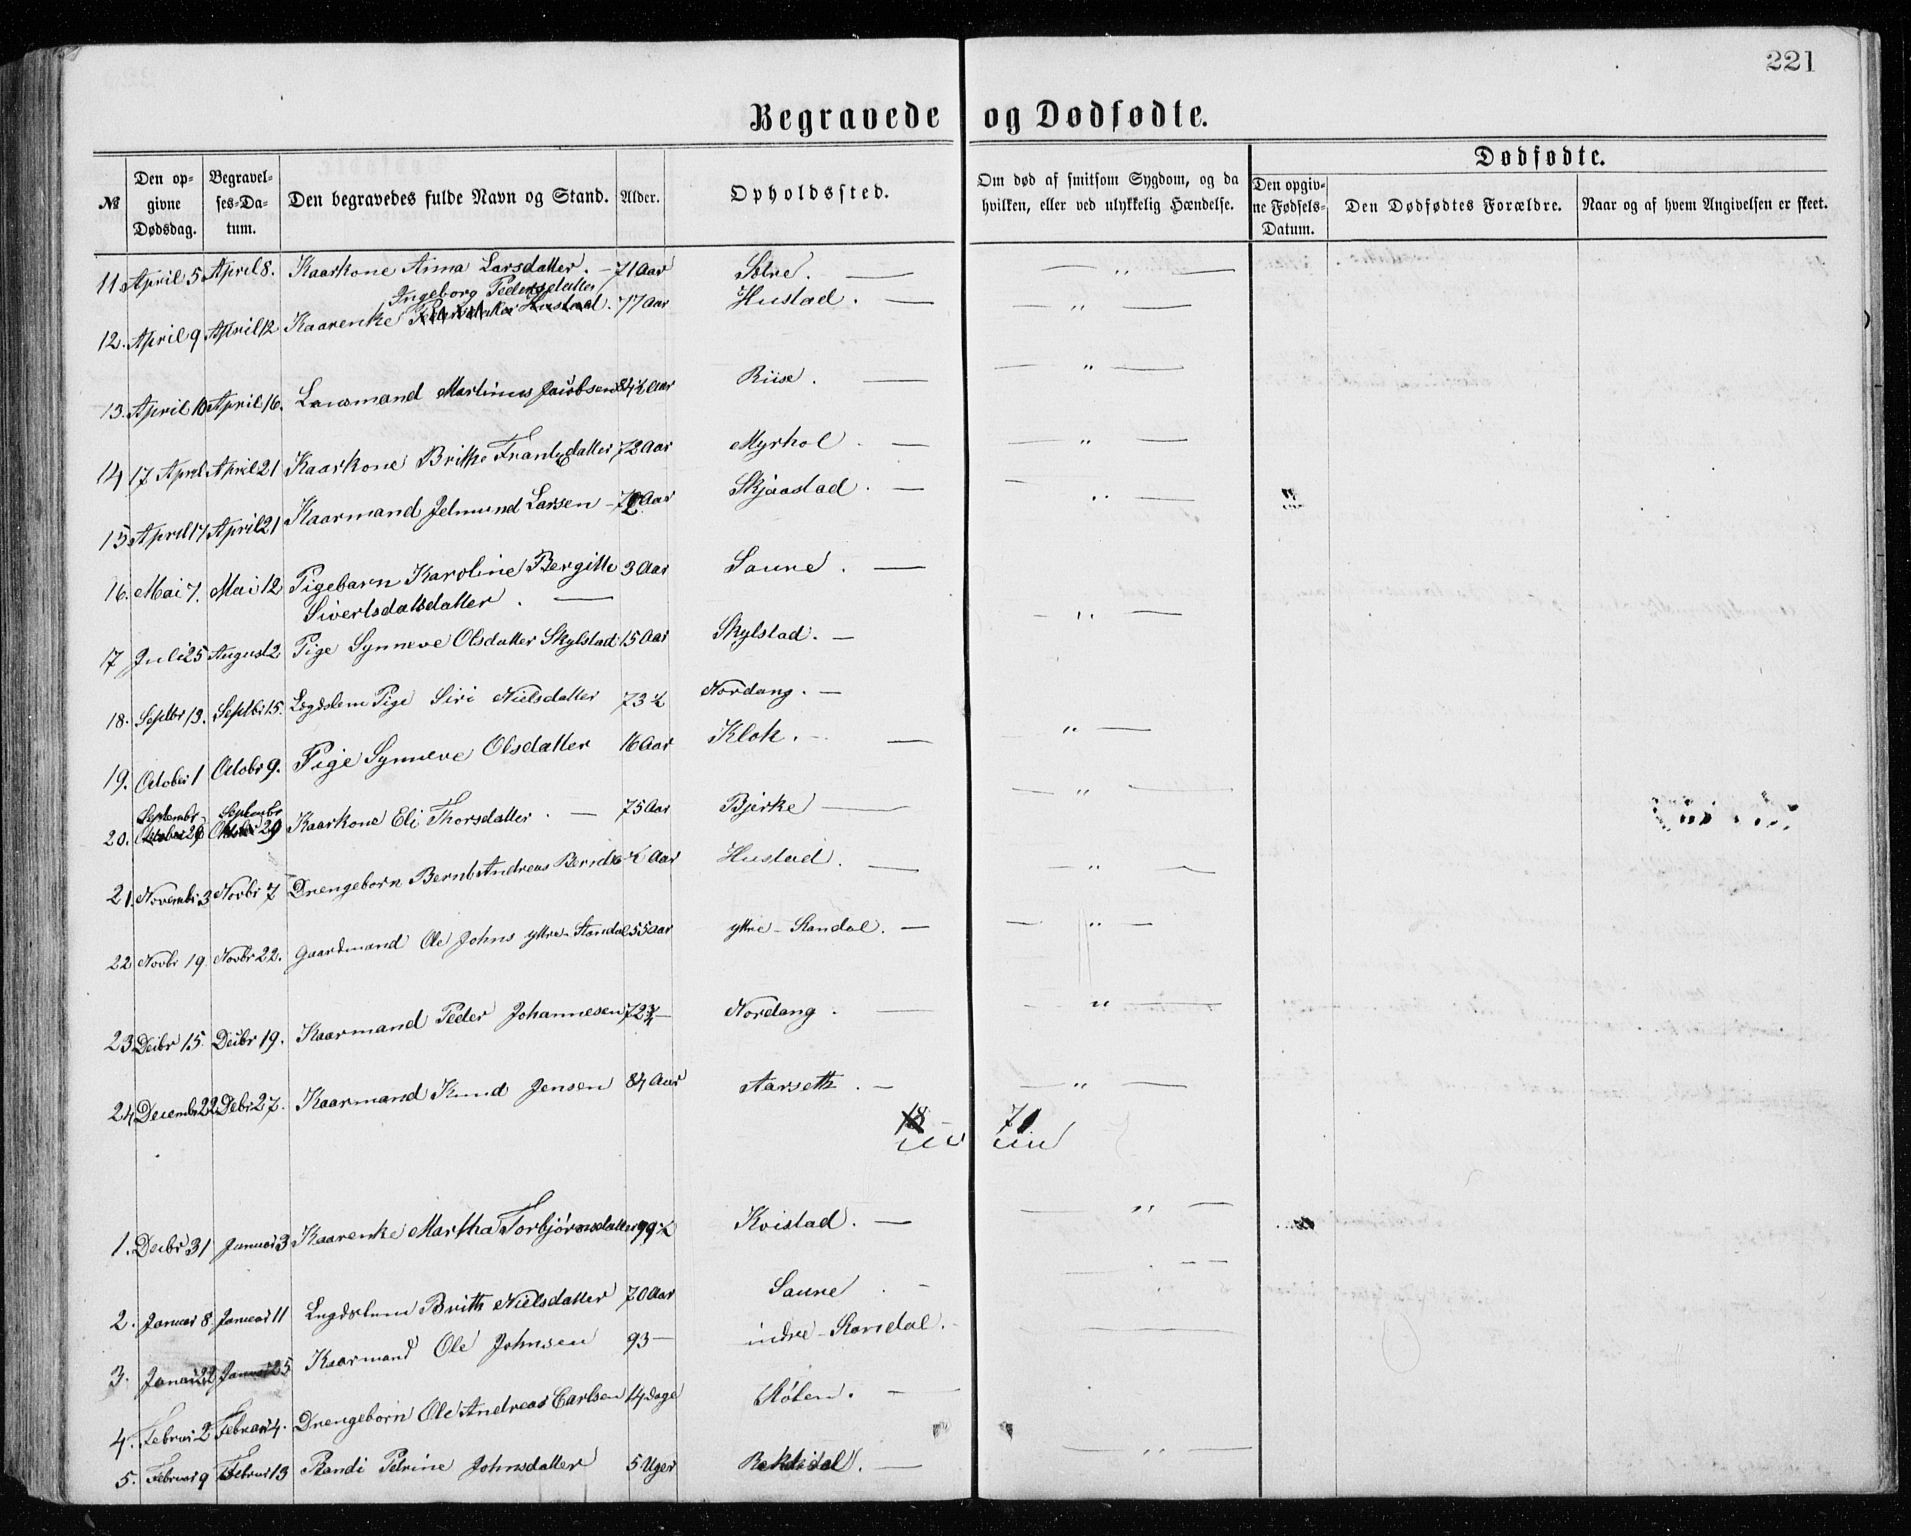 221
Begravede og Dødfødte.
№ Den opgivne Dødsdag. Begravelses-Datum. Den begravedes fulde Navn og Stand. Alder. Opholdssted. Om død af smitsom Sygdom, og da hvilken, eller ved ulykkelig Hændelse. Dødfødte. Den opgivne Fødsels-Datum. Den Dødfødtes Forældre. Naar og af hvem Angivelsen er skeet.
11. April 5 April 8. Kaarkone Anna Larsdatter. — 71 Aar — "
Ingeborg Pedersdatter
12. April 9 April 12 Kaarenke 77 Aar Hustad. — "
13. April 10 April 16. Martinus Jacobsen 84½ Aar Riise. — "
14 17 April April 21 Kaarkone Brithe 72 Aar Myrhol. — "
15 April 17 April 21 Kaarmand Jetmund Larsen — Aar Skjaastad. — "
16. Mai 7. Mai 12 Pigebarn Karoline Bergitte 3 Aar Saure. —
Sivertsdatter. —
7 Juli 25 August 2 Pige Synneve Olsdatter Skylstad 15 Aar Skylstad. — "
18. Septbr 13. Septbr 15. Lægdslem Pige Siri Nielsdatter 73½ Nordang. —
19. October 1 Octobr 9. Pige Synneve Olsdatter 16 Aar Klok. — "
Septembr Septembr
20. Kaarkone Eli Thorsdatter. — 75 Aar Bjerke — "
21. Novembr 3 Novbr 7 Drengebarn Bernt Andreas ½ Aar Hustad. — "
22 Novbr 19. Novbr 22. Gaardmand Ole Johns yttre-Standal 55 Aar yttre-Standal. — "
23 Decbr 15. Decbr 19. Kaarmand Peder Johannesen 72¾ — Nordang. — "
24 Decembr 22 Decbr 27. Kaarmand Knud Jensen 84 Aar Aarseth. — "
18 71
1. Decbr 31 Januar 3 Kaarenke Martha Torbjørnsdatter 99½ Kvistad. — "
2. Januar 8. Januar 11 Lægdslem Brith Nielsdatter 70 Aar Saure. —
3. Januar 22 Januar 25 Kaarmand Ole Johnsen 93 — indre-Standal. —
4. Februar 2 Februar 4. Drengebarn Ole Andreas Carlsen 14 dage Støten. —
5. Februar 9 Februar 13 Randi Petrine Johnsdatter 5 Uger — "